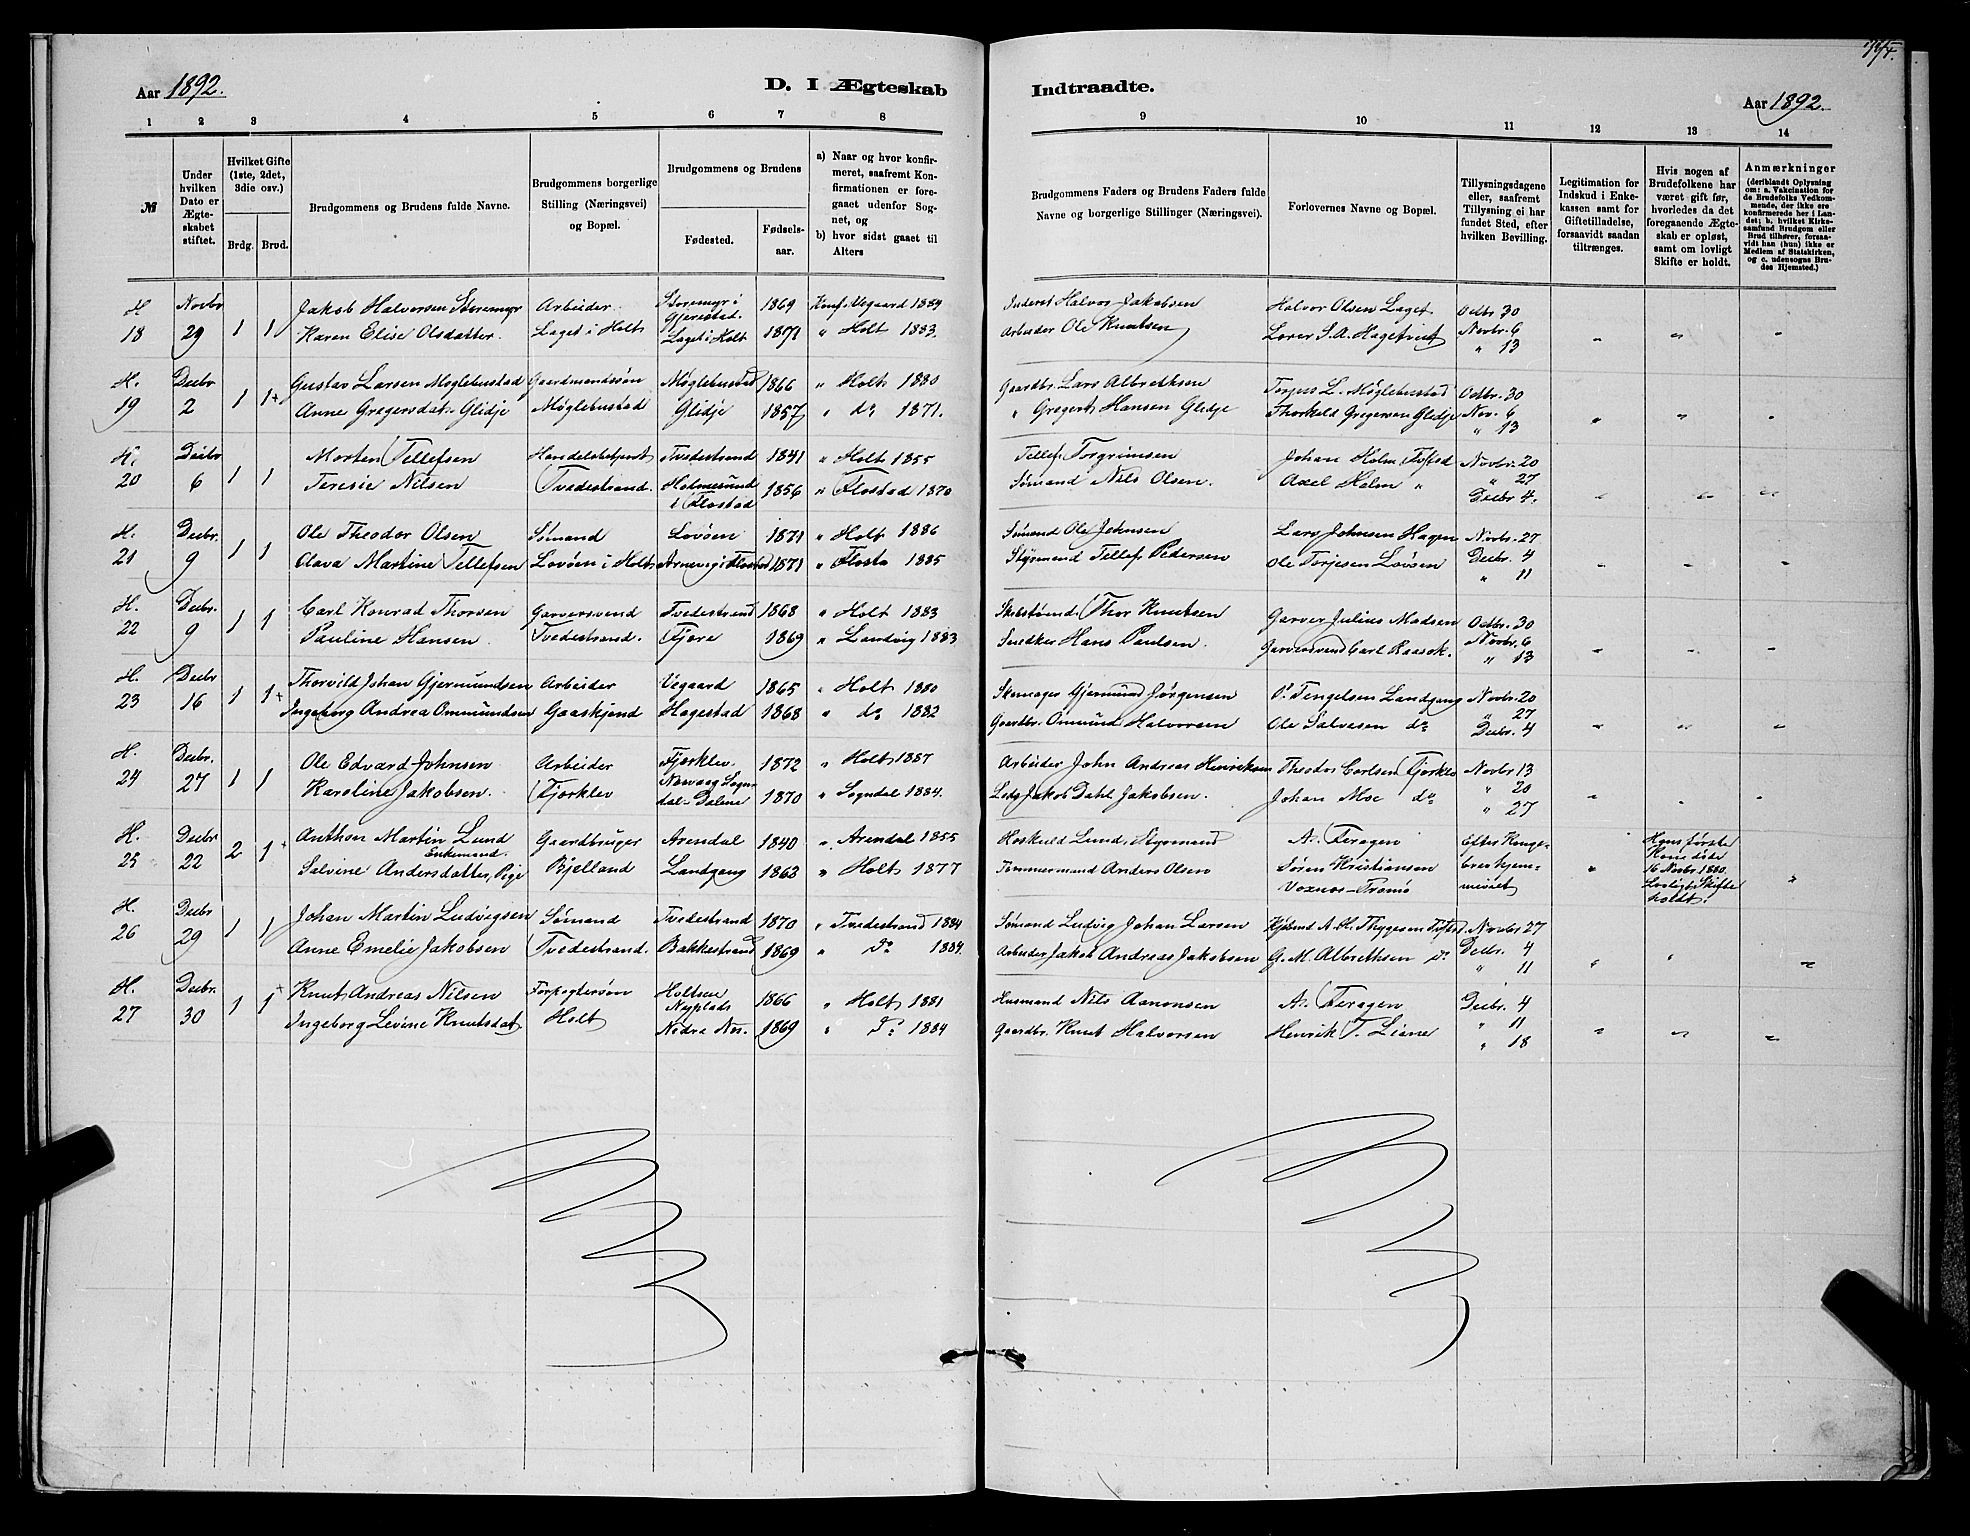 Aar 1892.
D. I Ægteskab
Indtraadte.
Aar 1892.
1 2 3 4 5 6 7 8
9 10 11 12 13 14
№
Under hvilken Dato er Ægteskabet stiftet.
Hvilket Gifte (1ste, 2det, 3die osv.)
Brdg. Brud.
Brudgommens og Brudens fulde Navne.
Brudgommens borgerlige Stilling (Næringsvei) og Bopæl.
Brudgommens og Brudens
Fødested.
Fødselsaar.
a) Naar og hvor konfirmeret, saafremt Konfirmationen er foregaaet udenfor Sognet, og
b) hvor sidst gaaet til Alters
Brudgommens Faders og Brudens Faders fulde Navne og borgerlige Stillinger (Næringsvei).
Forlovernes Navne og Bopæl.
Tillysningsdagene eller, saafremt Tillysning ei har fundet Sted, efter hvilken Bevilling.
Legitimation for Indskud i Enkekassen samt for Giftetilladelse, forsaavidt saadan tiltrænges.
Hvis nogen af Brudefolkene har været gift før, hvorledes da det foregaaende Ægteskab er opløst, samt om lovligt Skifte er holdt.
Anmærkninger
(deriblandt Oplysning om: a. Vakcination for de Brudefolks Vedkommende, der ikke ere konfirmerede her i Landet; b. hvilket Kirkesamfund Brudgom eller Brud tilhører, forsaavidt han (hun) ikke er Medlem af Statskirken, og c. udensogns Brudes Hjemsted.)
H. Novbr Jakob Halvorsen Storemyr Arbeider Storemyr i Gjerestad 1869 Konf. Vegaard 1884 Inderst Halvor Jakobsen Halvor Olsen Laget Octbr 30
18 29 1 1 Karen Elise Olsdatter. Laget i Holt Laget i Holt 1871 " Holt 1883. Arbeider Ole Knutsen Lærer S. A. Hagetvet Novbr. 6
" 13 " " "
H. Decbr Gustav Larsen Møglebustad Gaardmandssøn Møglebustad 1866 " Holt 1880 Gaardbr. Lars Albrethsen Torjus L. Møglebustad Octbr. 30
19 2 1 1+ Anne Gregersdatr Glidje Møglebustad Glidje 1857 " do 1871. " Gregert Hansen Glidje Thorkeld Gregersen Glidje Nov. 6
" 13 " " "
H. Decbr Morten Tellefsen Handelsbetjent Tvedestrand 1841 " Holt 1855 Tellef Torgrimsen Johan Holm, Tvstrd Novbr. 20
20 6 1 1 Teresie Nilsen Tvedestrand. Holmesund i Flostad 1856 " Flostad 1870 Sømand Nils Olsen. Axel Holm " " 27
Decbr 4. " " "
H. Decbr. Ole Theodor Olsen Sømand Lovøen 1871 " Holt 1886 Sømand Ole Johnsen Lars Johnsen Hagen Novbr. 27
21 9 1 1 Olava Martine Tellefsen Lovøen i Holt Arnevig i Flostad 1871 " Flosta 1885 Styrmand Tellef Pedersen Ole Torjesen Lovøen Decbr. 4
" 11 " " "
H. Decbr. Carl Konrad Thorsen Garversvend Tvedestrand 1868 " Holt 1883 Skibstømd. Thor Knutsen Garver Julius Madsen Octbr. 30
22 9 1 1 Pauline Hansen. Tvedestrand. Fjære 1869 " Landvig 1883 Snedker Hans Paulsen. Garversvend Carl Raasok. Novbr. 6
" 13 " " "
H. Decbr Thorvild Johan Gjermundsen Arbeider Vegaard 1865 " Holt 1880 Skomager Gjermund Jørgensen P. Tengelsen Landgang Novbr. 20
23 16 1 1+ Ingeborg Andrea Ommundsen Gaaskjend Hagestad 1868 " do 1882 Gaardbr. Omund Halvorsen Ole Salvesen do " 27
Decbr 4 " " "
H. Decbr. Ole Edvard Johnsen Arbeider Fjærklev 1872 " Holt 1887 Arbeider John Andreas Henriksen Theodor Carlsen Fjorklev Novbr 13
24 27 1 1 Karoline Jakobsen. Fjorklev Sogndal Dalene 1870 " Sogndal 1884. Jakob Dahl Jakobsen. Johan Moe do " 20
" 27 " " "
H. Decbr Anthon Martin Lund Enkemand. Gaardbruger Arendal 1840 " Arendal 1855 Hoskuld Lund, Styrmand A. Feragen Efter Kongebrev hjemmeviet
25 22 2 1+ Salvine Andersdatter, Pige Bjelland Landgang 1863 " Holt 1877 Tømmermand Anders Olsen Søren Kristiansen Voxnes-Tromø " Hans første Kone døde 16 Novbr. 1880. Lovligt Skifte holdt. "
H. Decbr Johan Martin Ludvigsen Sømand Tvedestrand 1870 " Tvedestrand 1884 Sømand Ludvig Johan Larsen A. H. Thygesen Novbr 27
26 29 1 1 Anne Emelie Jakobsen Tvedestrand. Bakkestrand 1869 " do 1884. Arbeider Jakob Andreas Jakobsen G. M. Albrethsen do Decbr. 4
" 11 " " "
H. Decbr. Knut Andreas Nilsen Forpagtersøn Holtsne Nyplads 1866 " Holt 1881 Husmand Nils Aanonsen A. Feragen Decbr. 4
27 30 1 1+ Ingeborg Levine Knutsdat Holt Nedre Nes. 1869 " do 1884 Gaardbr. Knut Halvorsen Henrik T. Liane " 11
" 18 " " "